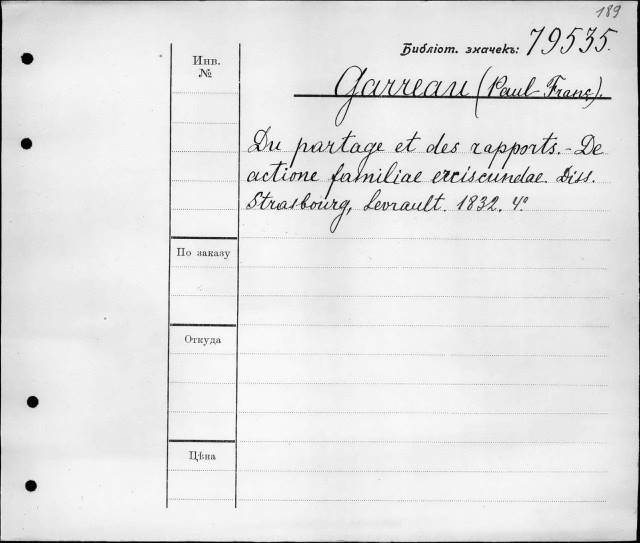 189
Библіот. значекъ: 79535.
Garreau (Paul-Franç).
Инв.
№
Du partage et des rapports. - De
actione familiae erciscundae. Diss.
Strasbourg, Levrault. 1832. 4°
По заказу
Откуда
Цѣна